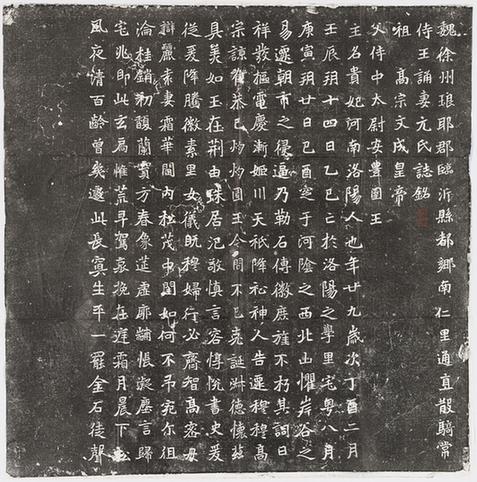 魏徐州琅耶郡臨沂縣都鄉南仁里通直散騎常
侍王誦妻元氏誌銘
祖高宗文成皇帝
父侍中太尉安豐圉王
王名貴妃河南洛陽人也年廿九歲次丁酉二月
壬辰朔十四日乙巳亡於洛陽之學里宅粵八月
庚寅朔廿日己酉窆于河陰之西北山懼岸谷之
易遷朝市之侵逼乃勒石傳徽庶旌不朽其詞曰
祥發摳電慶漸姬川天祇降祉神人告遷穆穆高
宗諒恭己灼灼圉王令問不已克誕淋德懷茲
具美如玉在荆由珠居氾敬慎言容惇悦書史爰
從爰降騰徽素里女儀既穆婦行必齊智高密母
辯麗素妻霜華閨內松茂中閫如何不弔宛尔徂
淪桂銷初馥蘭實方春像筵虛廓黼帳凝塵言歸
宅兆即此玄扃惟荒早駕哀挽在遲霜月晨下松
風夜清百齡曾幾邈此長冥生平一罷金石徒聲